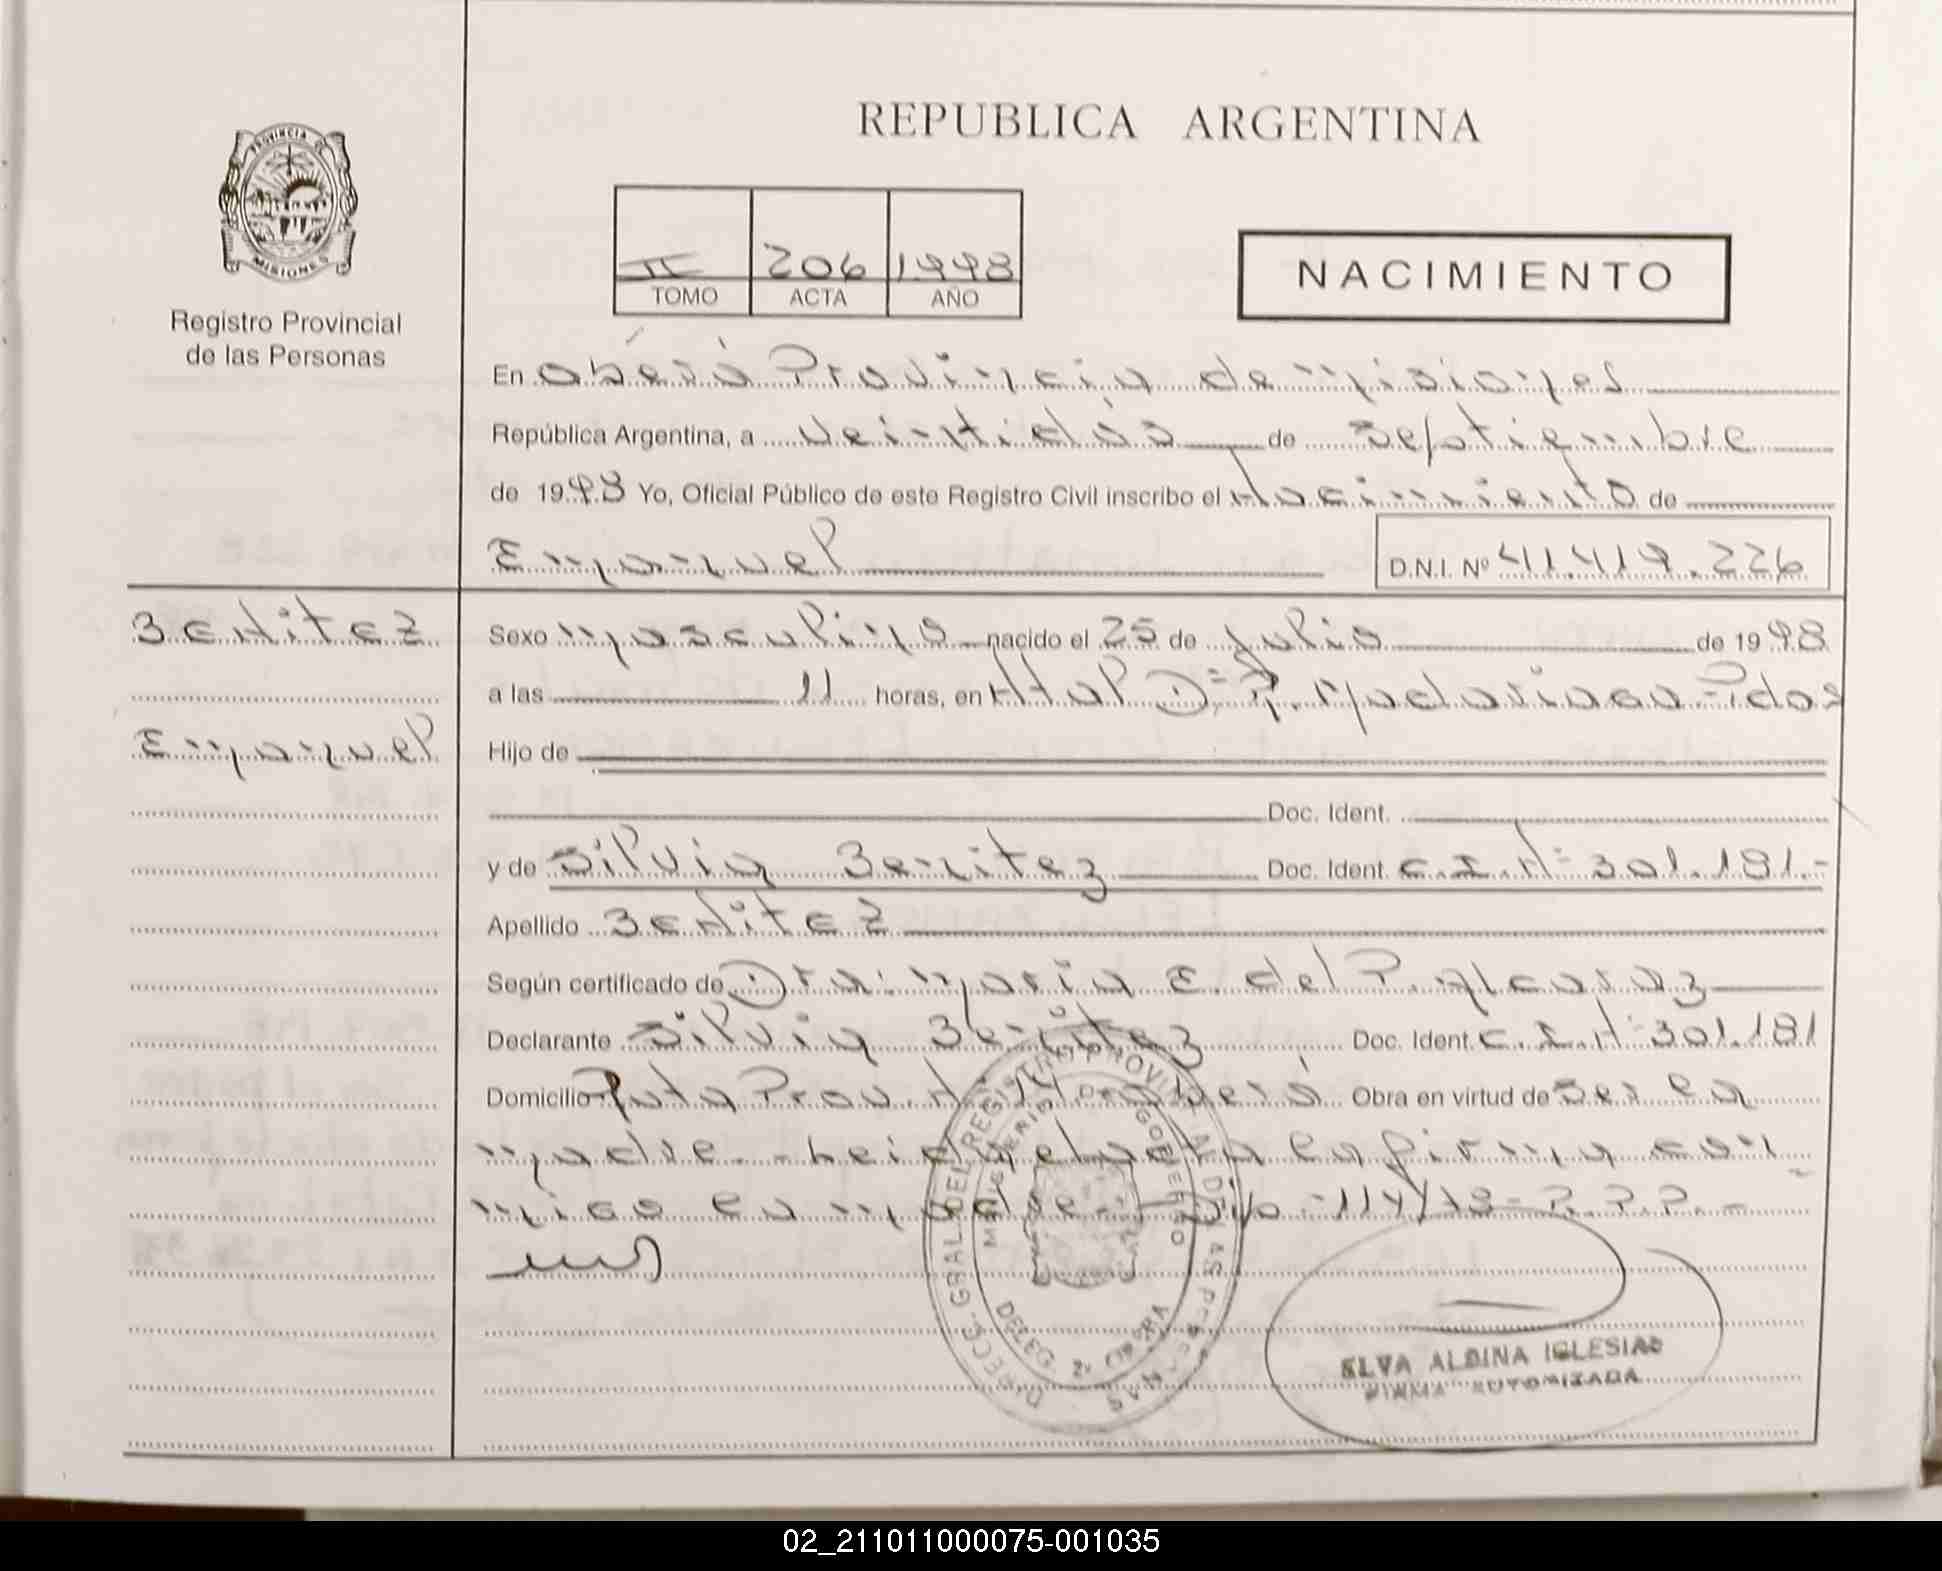 REPUBLICA ARGENTINA
PROVINCIA DE
MISIONES
Registro Provincial
de las Personas
II 206 1998
TOMO ACTA AÑO
NACIMIENTO
En Oberá Provincia de Misiones
República Argentina, a Veintidós de Septiembre
de 1998 Yo, Oficial Público de este Registro Civil inscribo el Nacimiento de
Emanuel D.N.I. Nº 41.419.226
Benitez
Emanuel
Sexo masculino nacido el 25 de Julio de 1998
a las 11 horas, en Htal Dr. R. Madariaga - Pdas
Hijo de
Doc. Ident.
y de Silvia Benitez Doc. Ident. C.I.Nº 301.181.-
Apellido Benitez
Según certificado de Dra. María E. del P.
Declarante Silvia Benitez Doc. Ident. C.I.Nº 301.181
Domicilio Ruta Prov. Nº Oberá Obra en virtud de ser la
madre - Leida el acta la firma con
migo la madre.-
DIRECC. GRAL DEL REGISTRO PROVINCIAL DE LAS PERSONAS
MINISTERIO DE GOBIERNO
DELEG. 2ª OBERA
ELVA ALBINA IGLESIAS
FIRMA AUTORIZADA
02_211011000075-001035